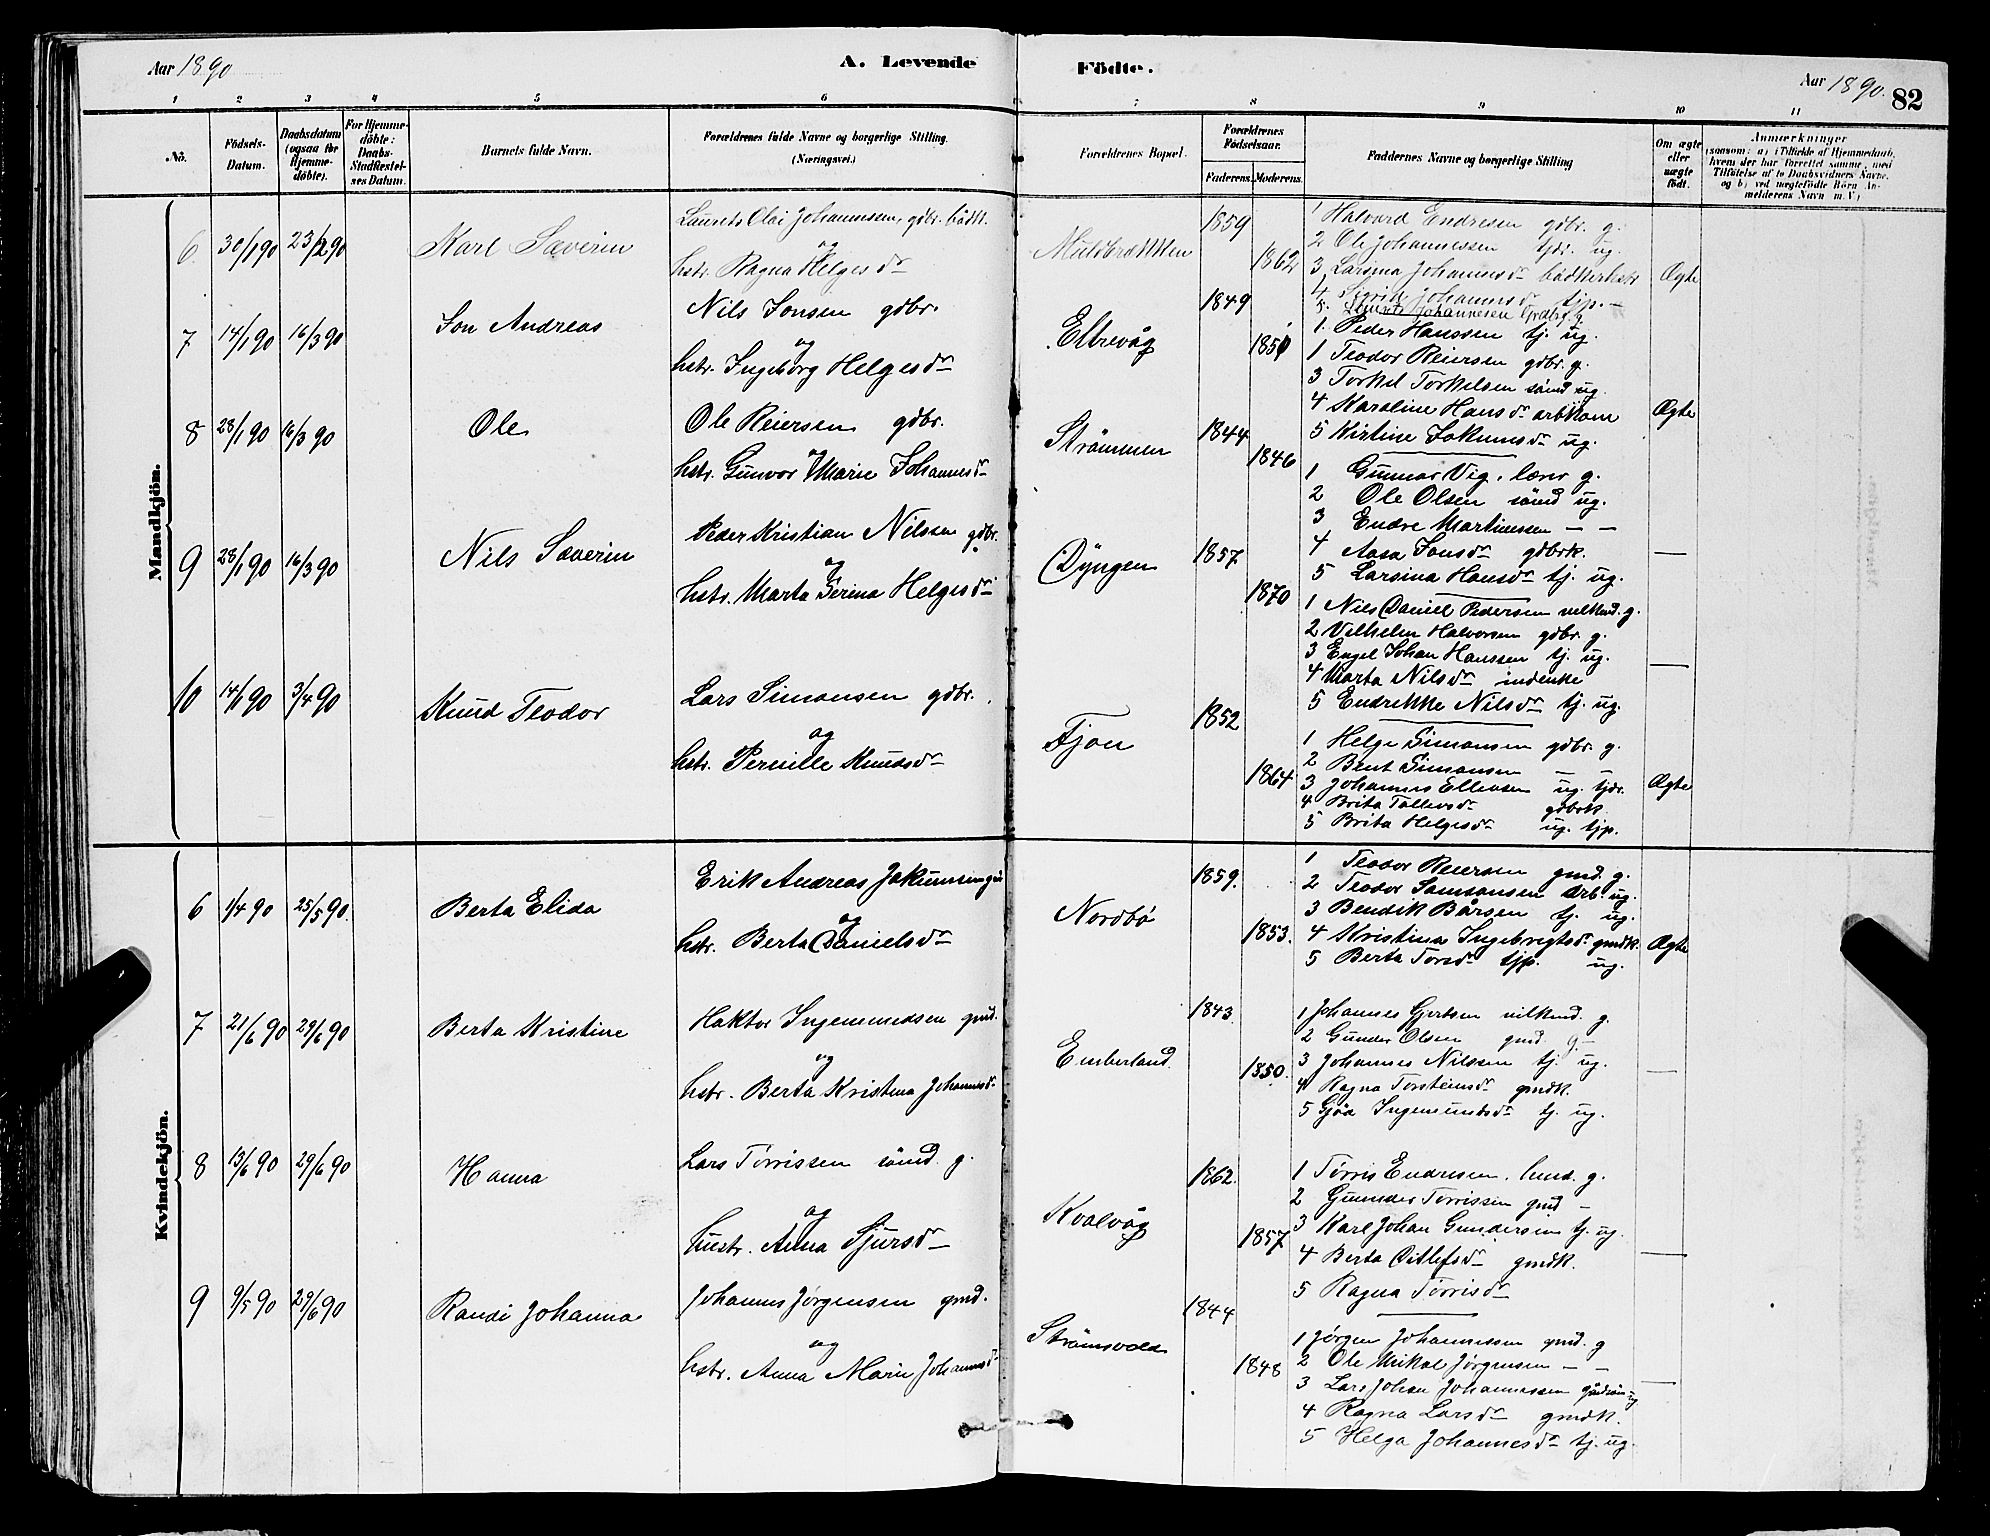 Aar 1890
A. Levende
Födte.
Aar 1890.
82
1 2 3 4 5 6 7 8 9 10 11
No.
Födsels-Datum.
Daabsdatum (ogsaa for Hjemme-döbte).
For Hjemme-döbte: Daabs-Stadfæstel-ses Datum.
Barnets fulde Navn.
Forældrenes fulde Navne og borgerlige Stilling. (Næringsvei.)
Forældrenes Bopæl.
Forældrenes Födselsaar.
Faderens.
Moderens.
Faddernes Navne og borgerlige Stilling
Om ægte eller uægte födt.
Anmærkninger
(saasom: a) i Tilfælde af Hjemmedaab, hvem der har forrettet samme, med Tilföielse af to Daabsvidners Navne, og b) ved uægtefödte Börn An-melderens Navn m. V.)
Mandkjön.
6 30/1 90 23/2 90 Karl Severin
Laurits Olai Johannesen, gdbr. bödk.
og
hstr. Ragna Helgesdr
1859
1862
1 Halvard Endresen gdbr. g.
2 Ole Johannessen tjdr. ug.
3 Larsina Johannesdr bödkerhstr
4 Johannesdr tjp. –
5. Johannesen
Ægte
7 14/1 90 16/3 90 Jon Andreas
Nils Jonsen gdbr.
og
hstr. Ingeborg Helgesdr
Eltrevåg
1849
1850
1. Peder Hanssen tj. ug.
1 Teodor Reiersen gdbr. g.
3 Torkel Torkelsen sömd ug.
4 Karoline Hansdr arbkone
5 Kirtine Jokumsdr ug.
Ægte
8 28/1 90 16/3 90 Ole
Ole Reiersen gdbr.
og
hstr. Gunvor Marie Johannesdr
Strömmen
1844
1846
1 Gunnar Vig, lærer g.
2 Ole Olsen sömd ug.
3 Endre Martinessen – –
4 Aasa Jonsdr gdbrk.
5 Larsina Hansdr tj. ug.
—
9 28/1 90 16/3 90 Nils Severin
Peder Kristian Nilssen gdbr.
og
hstr. Marta Serina Helgesdr
Dyngen
1857
1870
1 Nils Daniel Pedersen vilkmd. g.
2 Vilhelm Halvorsen gdbr. g.
3 Engel Johan Hanssen tj. ug.
4 Marta Nilsdr indenke
5 Endrikke Nilsdr tj. ug.
—
10 14/1 90 3/4 90 Knud Teodor
Lars Simonsen gdbr.
og
hstr. Pernille Knudsdr
Fjon
1852
1864
1 Helge Simonsen gdbr. g.
2 Brut Simonsen – –
3 Johannes Ellevsen ug. tjdr.
4 Brita Tollevsdr gdbrk.
5 Brita Helgesdr ug. tjp.
Ægte
Kvindekjön.
6 1/4 90 25/5 90. Berta Elida
Erik Andreas Jakumsen
og
hstr. Berta Danielsdr
Nordbö
1859.
1853.
1 Teodor Reiersen gmd. g.
2 Teodor Samsonsen arb. ug.
3 Bendik Bårsen tj. ug.
4 Kristina Ingebrigtsdr gmdk.
5 Berta Torsdr tjp. ug.
Ægte
7 21/6 90 29/6 90 Berta Kristine
Haktor Ingemundsen gmd.
og
hstr. Berta Kristina Johannesdr
Emberland
1843.
1850.
1 Johannes Gjertsen vilkmd. g.
2 Gunder Olsen gmd. g.
3 Johannes Nilssen tj. ug.
4 Ragna Torsteinsdr gmdk.
5 Gjöa Ingemundsdr tj. ug.
—
8 13/6 90 29/6 90 Hanna
Lars Törrissen sömd. g.
og
hustr. Anna Sjursdr
Kvalvåg
1862.
1857
1 Törris Endresen. hmd. g.
2 Gunnder Törrissen gmd –
3 Karl Johan Gundersen tj. ug.
4 Berta Ditlefsdr gmdk.
5 Ragna Törrisdr
—
9 9/5 90 29/6 90 Randi Johanna
Johannes Jörgensen gmd.
og
hstr. Anna Marie Johannesdr
Strömsvold
1844
1848
1 Jörgen Johannessen gmd. g
2 Ole Mikal Jörgensen – –
3 Lars Johan Johannessen
4 Ragna Larsdr gmdk.
5 Helga Johannesdr tj. ug.
—